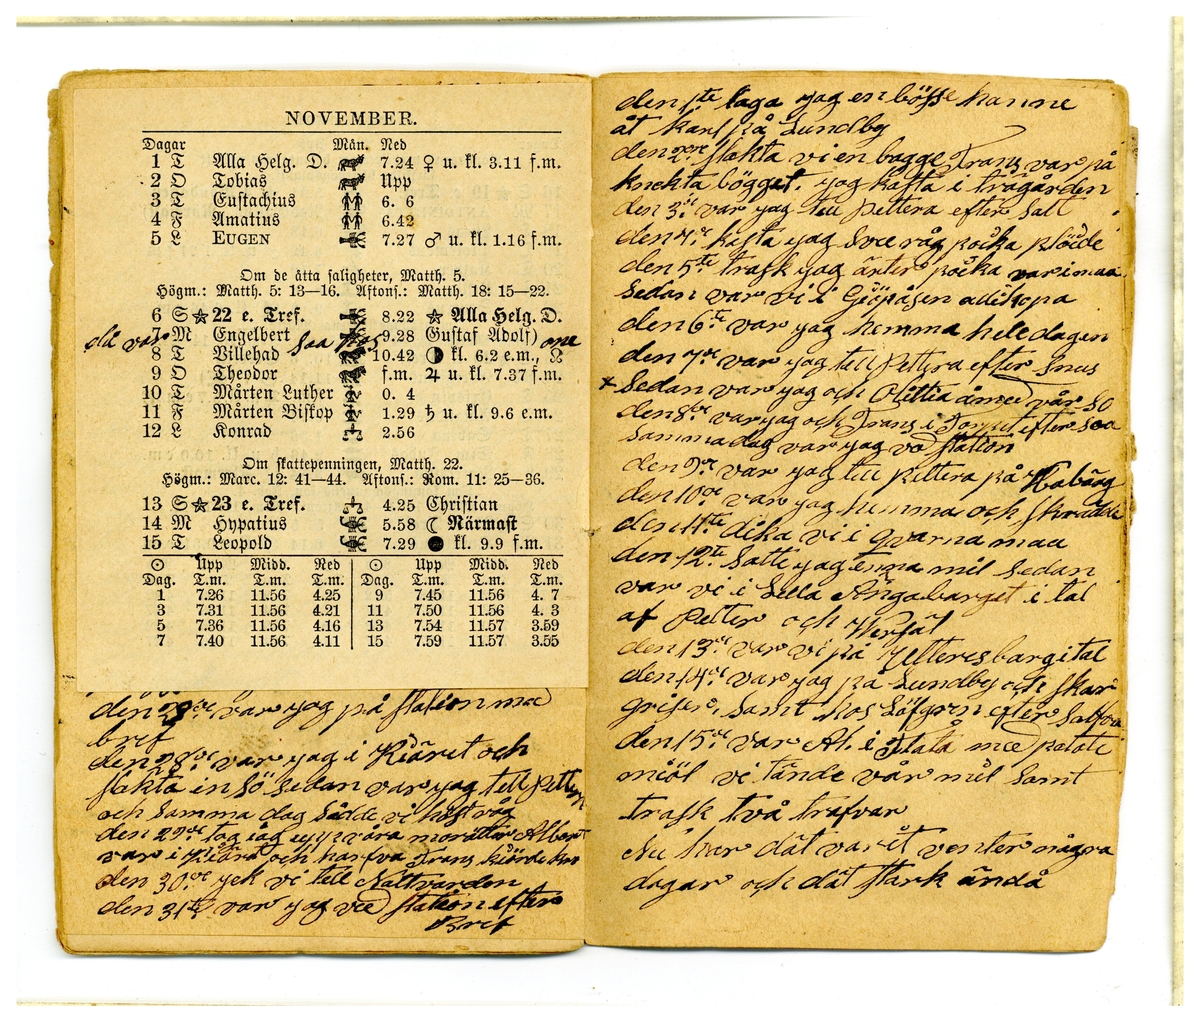 NOVEMBER.
Dagar Mån. Ned
1 T Alla Helg. D. 7.24 ♀ u. kl. 3.11 f.m.
2 O Tobias Upp
3 T Eustachius 6. 6
4 F Amatius 6.42
5 L EUGEN 7.27 ♂ u. kl. 1.16 f.m.
Om de åtta saligheter, Matth. 5.
Högm.: Matth. 5: 13—16. Aftons.: Matth. 18: 15—22.
6 S ☆ 22 e. Tref. 8.22 ☆ Alla Helg. D.
7 M Engelbert 9.28 Gustaf Adolf)
8 T Villehad 10.42 ◑ kl. 6.2 e.m., ☊
9 O Theodor f.m. ♃ u. kl. 7.37 f.m.
10 T Mårten Luther 0. 4
11 F Mårten Biskop 1.29 ♄ u. kl. 9.6 e.m.
12 L Konrad 2.56
Om skattepenningen, Matth. 22.
Högm.: Marc. 12: 41—44. Aftons.: Rom. 11: 25—36.
13 S ☆ 23 e. Tref. 4.25 Christian
14 M Hypatius 5.58 ☾ Närmast
15 T Leopold 7.29 ● kl. 9.9 f.m.
☉ Upp Midd. Ned ☉ Upp Midd. Ned
Dag. T.m. T.m. T.m. Dag. T.m. T.m. T.m.
1 7.26 11.56 4.25 9 7.45 11.56 4. 7
3 7.31 11.56 4.21 11 7.50 11.56 4. 3
5 7.36 11.56 4.16 13 7.54 11.57 3.59
7 7.40 11.56 4.11 15 7.59 11.57 3.55
den var yag på station med
bref
den 28de var yag i Kiäret och
slakta en sö sedan var yag tell Petter
och samma dag sådde vi höst råg
den 29de tog iag upp våra morötter Albert
var i och harfva Frans kiörde
den 30de gek vi tell Nattvarden
den 31te var yag ved station efter
Bref
den 1te laga yag en bösse hanne
åt Karl på Lundby
den 2dre slakta vi en bagge Frans var på
knekta bögget. yag kasta i trägården
den 3de var yag till Pettera efter Salt
den 4de kasta yag råg påcka plöide
den 5te trask yag ärter påcka var i maa
Sedan var vi i
den 6te var yag hemma hele dagen
den 7de var yag tell Pettera efter Snus
Sedan var yag och vår So
den 8de var yag och Frans i Torpet efter Soa
samma dag var yag ve station
den 9de var yag till Pettera på
den 10de var yag hemma och skrädde
den 11te dika vi i qvarna maa
den 12te Satte yag enna mil Sedan
var vi i Lella Ängabarget i tal
af Petter och
den 13de var vi på barg i tal
den 14de var yag på Lundby och skar
griser, samt hos Löfgren efter
den 15de var Al. i med potate
miöl vi tände vår mil samt
trask två trafvar
Nu har dät varit venter några
dagar och dät stark ändå